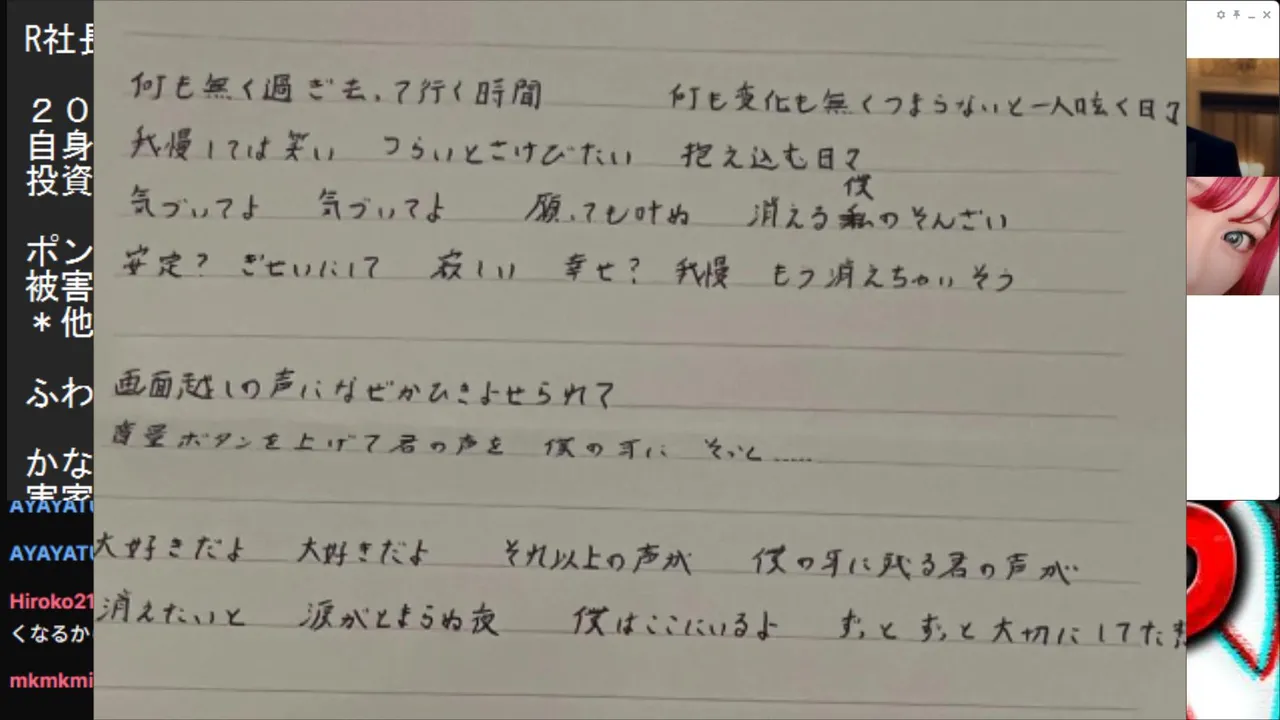 R社長
２０
自身
投資
ポン
被害
＊他
ふわ
かな
実家
AYAYATU
AYAYATU
Hiroko21
くなるか
mkmkmi
何も無く過ぎ去って行く時間 何も変化も無くつまらないと一人呟く日々
我慢しては笑い つらいとさけびたい 抱え込む日々
気づいてよ 気づいてよ 願っても叶ぬ 消える僕のそんざい
安定? ぎせいにして 寂しい 幸せ? 我慢 もう消えちゃいそう
画面越しの声になぜかひきよせられて
音量ボタンを上げて君の声を 僕の耳に そっと……
大好きだよ 大好きだよ それ以上の声が 僕の耳に残る君の声が
消えたいと 涙がとまらぬ夜 僕はここにいるよ ずっと ずっと 大切にしてた